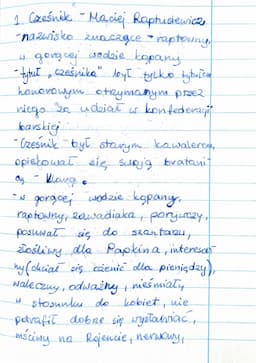 1. Cześnik - Maciej Raptusiewicz
- nazwisko znaczące - raptowny,
w gorącej wodzie kąpany
- tytuł „cześnika" był tylko tytułem
honorowym otrzymanym przez
niego za udział w konfederacji
barskiej
- Cześnik był starym kawalerem,
opiekował się swoją bratani-
cą - Klarą.
- w gorącej wodzie kąpany,
raptowny, zawadiaka, porywczy,
posuwał się do szantażu,
złośliwy dla Papkina, interesow
ny (chciał się ożenić dla pieniędzy),
waleczny, odważny, nieśmiały
w stosunku do kobiet, nie
potrafił dobrze się wysławiać,
mściwy na Rejencie, nerwowy,